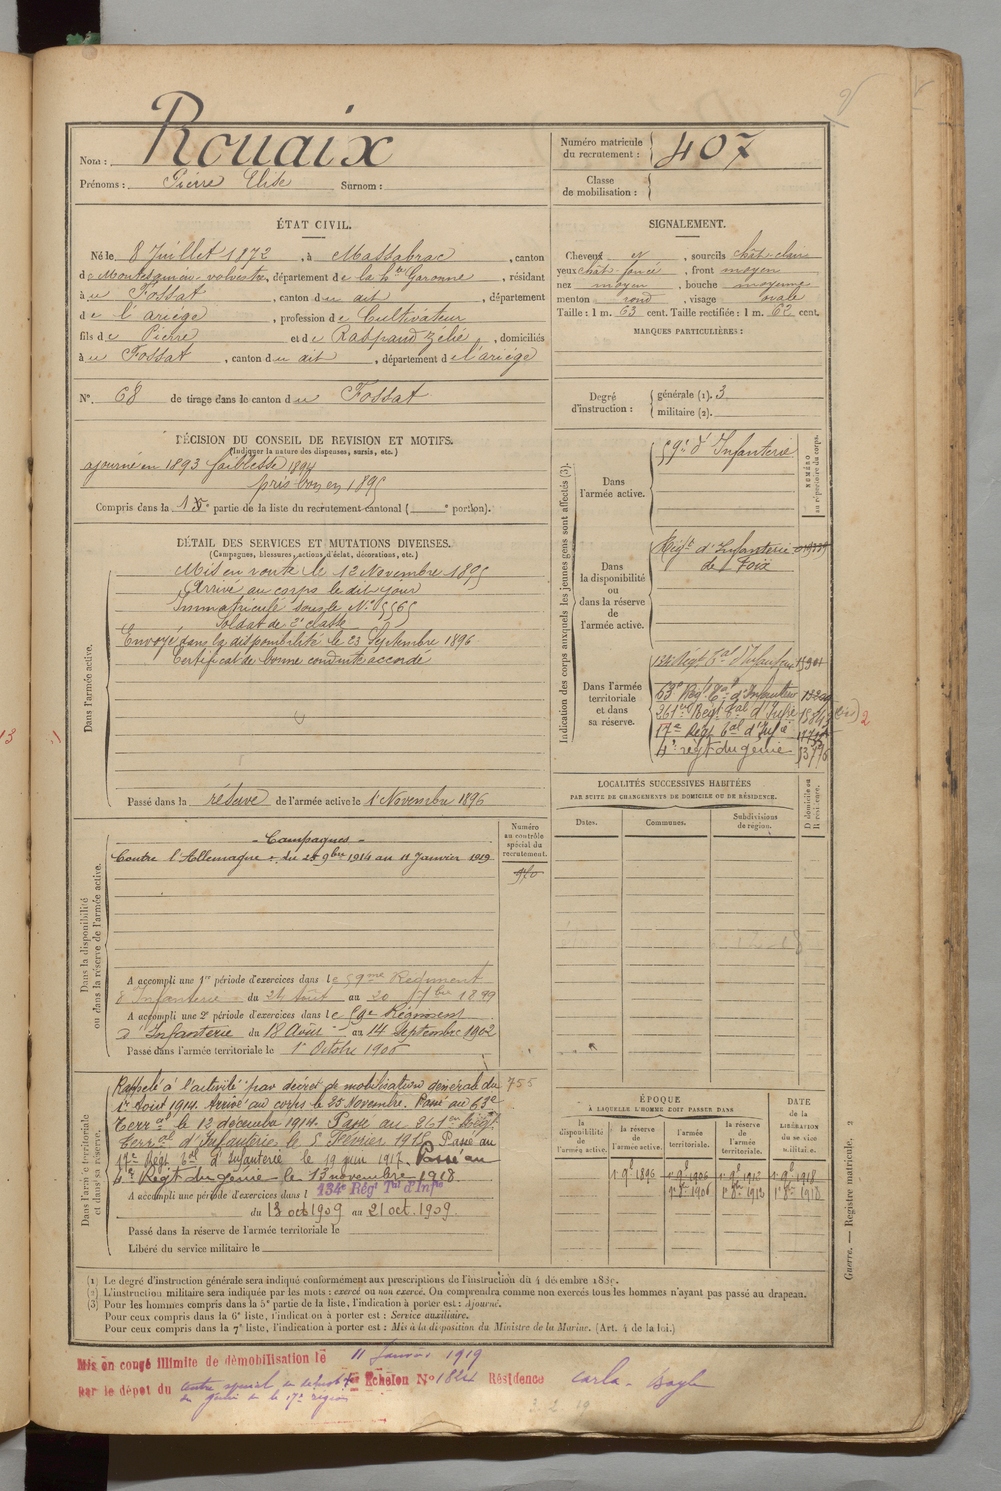 Nom : Rouaix
Prénoms : Pierre Elise Surnom :
Numéro matricule du recrutement : 407
Classe de mobilisation :
ÉTAT CIVIL.
Né le 8 Juillet 1872, à Massabrac, canton
de Montesquieu-volvestre, département de la hte Garonne, résidant
à u Fossat, canton du dit, département
de l'ariège, profession de Cultivateur
fils de Pierre et de Raspaud Zélie, domiciliés
à u Fossat, canton du dit, département de l'ariège
N° 68 de tirage dans le canton du Fossat
SIGNALEMENT.
Cheveux et, sourcils chât clairs
yeux chât foncé, front moyen
nez moyen, bouche moyenne
menton rond, visage ovale
Taille : 1 m. 63 cent. Taille rectifiée : 1 m. 62 cent.
MARQUES PARTICULIÈRES :
Degré d'instruction : générale (1). 3
militaire (2).
DÉCISION DU CONSEIL DE REVISION ET MOTIFS.
(Indiquer la nature des dispenses, sursis, etc.)
ajourné en 1893 faiblesse 1894
pris bon en 1895
Compris dans la 1e partie de la liste du recrutement cantonal ( e portion).
DÉTAIL DES SERVICES ET MUTATIONS DIVERSES.
(Campagnes, blessures, actions d'éclat, décorations, etc.)
Dans l'armée active.
Mis en route le 12 Novembre 1895
Arrivé au corps le dit jour
Immatriculé sous le N° 5565
Soldat de 2e classe
Envoyé dans la disponibilité le 23 Septembre 1896
Certificat de bonne conduite accordé
Passé dans la réserve de l'armée active le 1 Novembre 1896
Indication des corps auxquels les jeunes gens sont affectés (3).
NUMÉRO au répertoire du corps.
Dans l'armée active.
59e d'Infanterie
Dans la disponibilité ou dans la réserve de l'armée active.
Régt d'Infanterie
de Foix
Dans l'armée territoriale et dans sa réserve.
134 Régt Tal d'Infanterie
63e Régt Tal d'Infanterie
261e Régt Tal d'Infie
17e Régt Tal d'Infie
4e régt du génie
2
LOCALITÉS SUCCESSIVES HABITÉES
PAR SUITE DE CHANGEMENTS DE DOMICILE OU DE RÉSIDENCE.
D domicile ou R résidence.
Dates. Communes. Subdivisions de région.
Dans la disponibilité ou dans la réserve de l'armée active.
Numéro au contrôle spécial du recrutement.
- Campagnes -
Contre l'Allemagne : du 25 9bre 1914 au 11 Janvier 1919
A accompli une 1re période d'exercices dans le 59me Régiment
d'Infanterie du 24 Août au 20 7bre 1899
A accompli une 2e période d'exercices dans le 59e Régiment
d'Infanterie du 18 Août au 14 Septembre 1902
Passé dans l'armée territoriale le 1er Octobre 1906
Dans l'armée territoriale et dans sa réserve.
Rappelé à l'activité par décret de mobilisation générale du 755
1er Août 1914. Arrivé au corps le 25 Novembre. Passé au 63e
Terral le 12 décembre 1914. Passé au 261e Régt
Terral d'Infanterie le 5 Février 1915. Passé au
17e Régt Tal d'Infanterie le 19 juin 1917. Passé au
4e Régt du génie le 13 novembre 1918.
A accompli une période d'exercices dans l 134e Régt Tal d'Infie
du 13 oct 1909 au 21 oct. 1909.
Passé dans la réserve de l'armée territoriale le
Libéré du service militaire le
ÉPOQUE
À LAQUELLE L'HOMME DOIT PASSER DANS
la disponibilité de l'armée active.
la réserve de l'armée active.
l'armée territoriale.
la réserve de l'armée territoriale.
DATE de la LIBÉRATION du service militaire.
1 9e 1896 1 9e 1906 1 9e 1912 1 9e 1918
1er 8e 1906 1er 8e 1912 1er 8e 1918
(1) Le degré d'instruction générale sera indiqué conformément aux prescriptions de l'instruction du 4 décembre 1889.
(2) L'instruction militaire sera indiquée par les mots : exercé ou non exercé. On comprendra comme non exercés tous les hommes n'ayant pas passé au drapeau.
(3) Pour les hommes compris dans la 5e partie de la liste, l'indication à porter est : Ajourné.
Pour ceux compris dans la 6e liste, l'indication à porter est : Service auxiliaire.
Pour ceux compris dans la 7e liste, l'indication à porter est : Mis à la disposition du Ministre de la Marine. (Art. 4 de la loi.)
Guerre. — Registre matricule. 2
Mis en congé illimité de démobilisation le 11 Janvier 1919
par le dépôt du centre spécial de démob Echelon N° 1824 Résidence Carla-Bayle
du génie de la 17e région